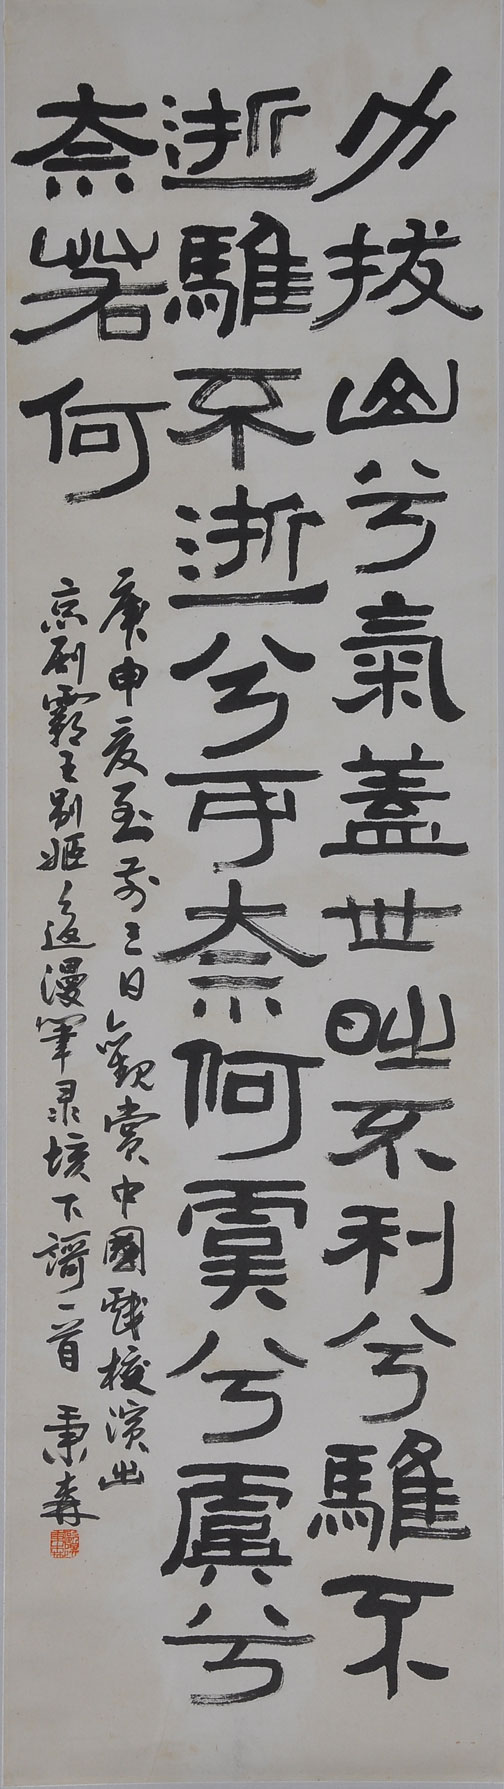 力拔山兮氣蓋世時不利兮騅不
逝騅不逝兮可奈何虞兮虞兮
奈若何
庚申夏至前三日觀賞中國戲校演出
京剧霸王别姬後漫筆录垓下謌一首 秉森